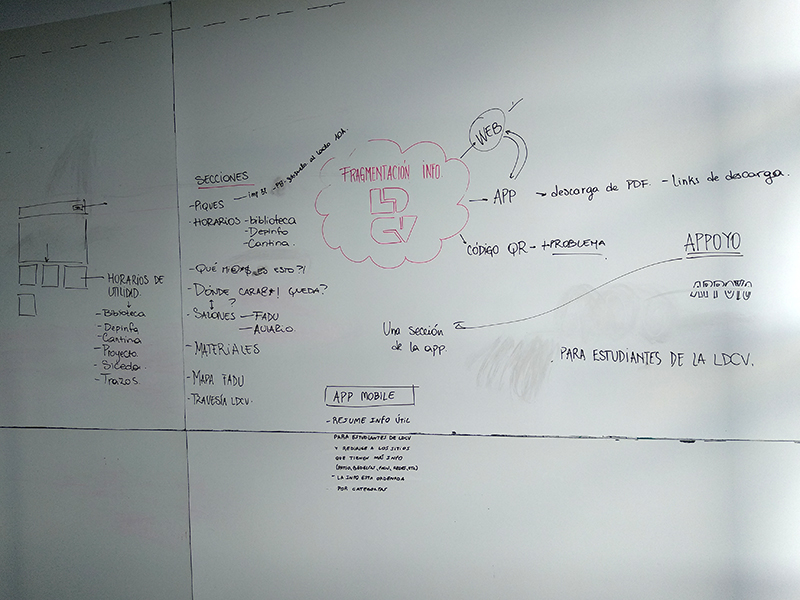 HORARIOS DE
UTILIDAD.
- Biblioteca
- Depinfo
- Cantina
- Proyecto
- Siceda
- Trazos.
SECCIONES
- PIQUES
- HORARIOS - biblioteca
- Depinfo
- Cantina.
- QUÉ M!@*$ ES ESTO?!
- DÓNDE CARA@*! QUEDA?
?
- SALONES - FADU
- AULARIO.
- MATERIALES
- MAPA FADU
- TRAVESÍA LDCV.
FRAGMENTACIÓN INFO
LD
CV
WEB
APP → descarga de PDF. - links de descarga.
CÓDIGO QR - +PROBLEMA
APPOYO
APPOYO
Una sección
de la app.
. PARA ESTUDIANTES DE LA LDCV.
APP MOBILE
- RESUME INFO ÚTIL
PARA ESTUDIANTES DE LDCV
Y REDIRIGE A LOS SITIOS
QUE TIENEN MÁS INFO
- LA INFO ESTA ORDENADA
POR CATEGORÍAS